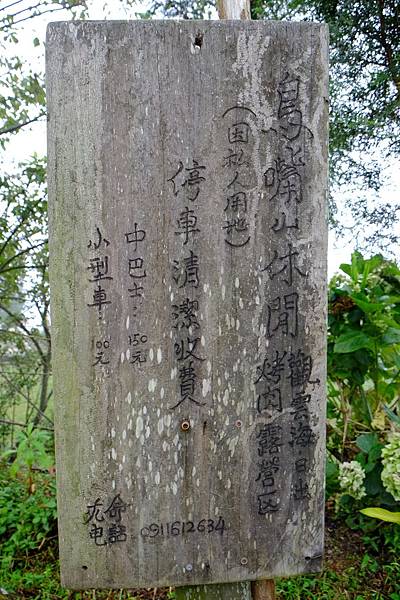 鳥嘴山休閒
觀雲海日出
烤肉露營区
(因私人用地)
停車清潔收費
中巴士：150元
小型車：100元
電話 0911612634